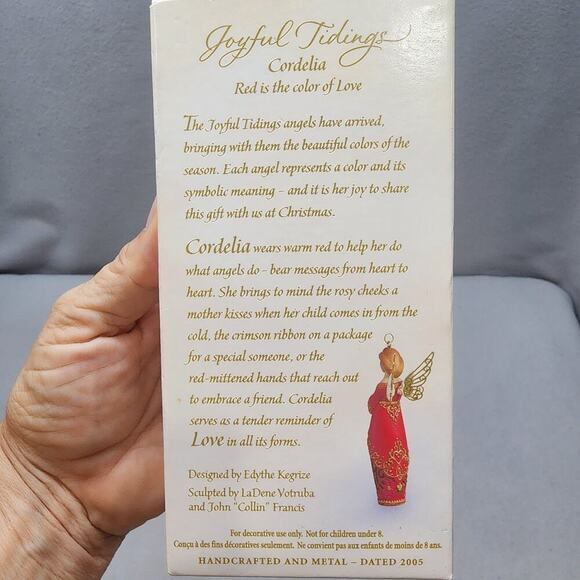 Joyful Tidings
Cordelia
Red is the color of Love
The Joyful Tidings angels have arrived,
bringing with them the beautiful colors of the
season. Each angel represents a color and its
symbolic meaning – and it is her joy to share
this gift with us at Christmas.
Cordelia wears warm red to help her do
what angels do – bear messages from heart to
heart. She brings to mind the rosy cheeks a
mother kisses when her child comes in from the
cold, the crimson ribbon on a package
for a special someone, or the
red-mittened hands that reach out
to embrace a friend. Cordelia
serves as a tender reminder of
Love in all its forms.
Designed by Edythe Kegrize
Sculpted by LaDene Votruba
and John "Collin" Francis
For decorative use only. Not for children under 8.
Conçu à des fins décoratives seulement. Ne convient pas aux enfants de moins de 8 ans.
HANDCRAFTED AND METAL – DATED 2005